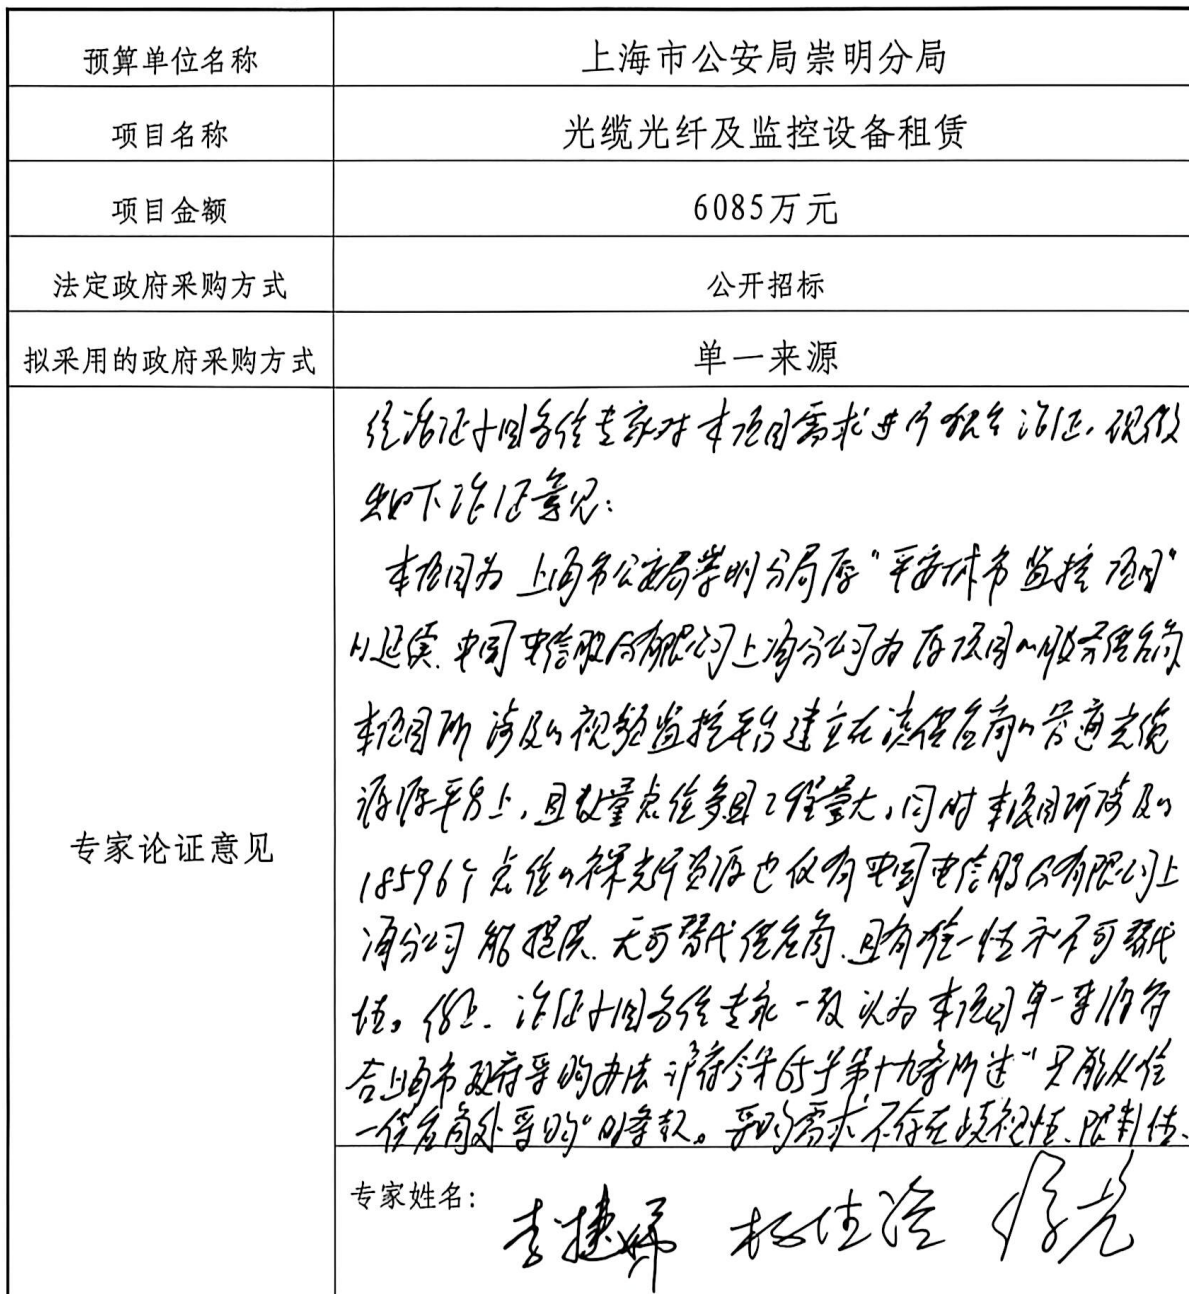 预算单位名称 上海市公安局崇明分局
项目名称 光缆光纤及监控设备租赁
项目金额 6085万元
法定政府采购方式 公开招标
拟采用的政府采购方式 单一来源
专家论证意见
经论证小组各位专家对本项目需求进行综合论证,现做
出如下论证意见:
本项目为上海市公安局崇明分局原"平安城市监控项目"
的延续.中国电信股份有限公司上海分公司为原项目的服务供应商
本项目所涉及的视频监控平台建立在该供应商的普通光缆
资源平台上,且数量点位多且工程量大,同时本项目所涉及的
18596个点位的裸光纤资源也仅有中国电信股份有限公司上
海分公司能提供.无可替代供应商.具有唯一性和不可替代
性。综上.论证小组各位专家一致认为本项目单一来源符
合上海市政府采购办法沪府令第65号第十九条所述"只能从唯
一供应商处采购"的条款。采购需求不存在歧视性、限制性、
专家姓名: